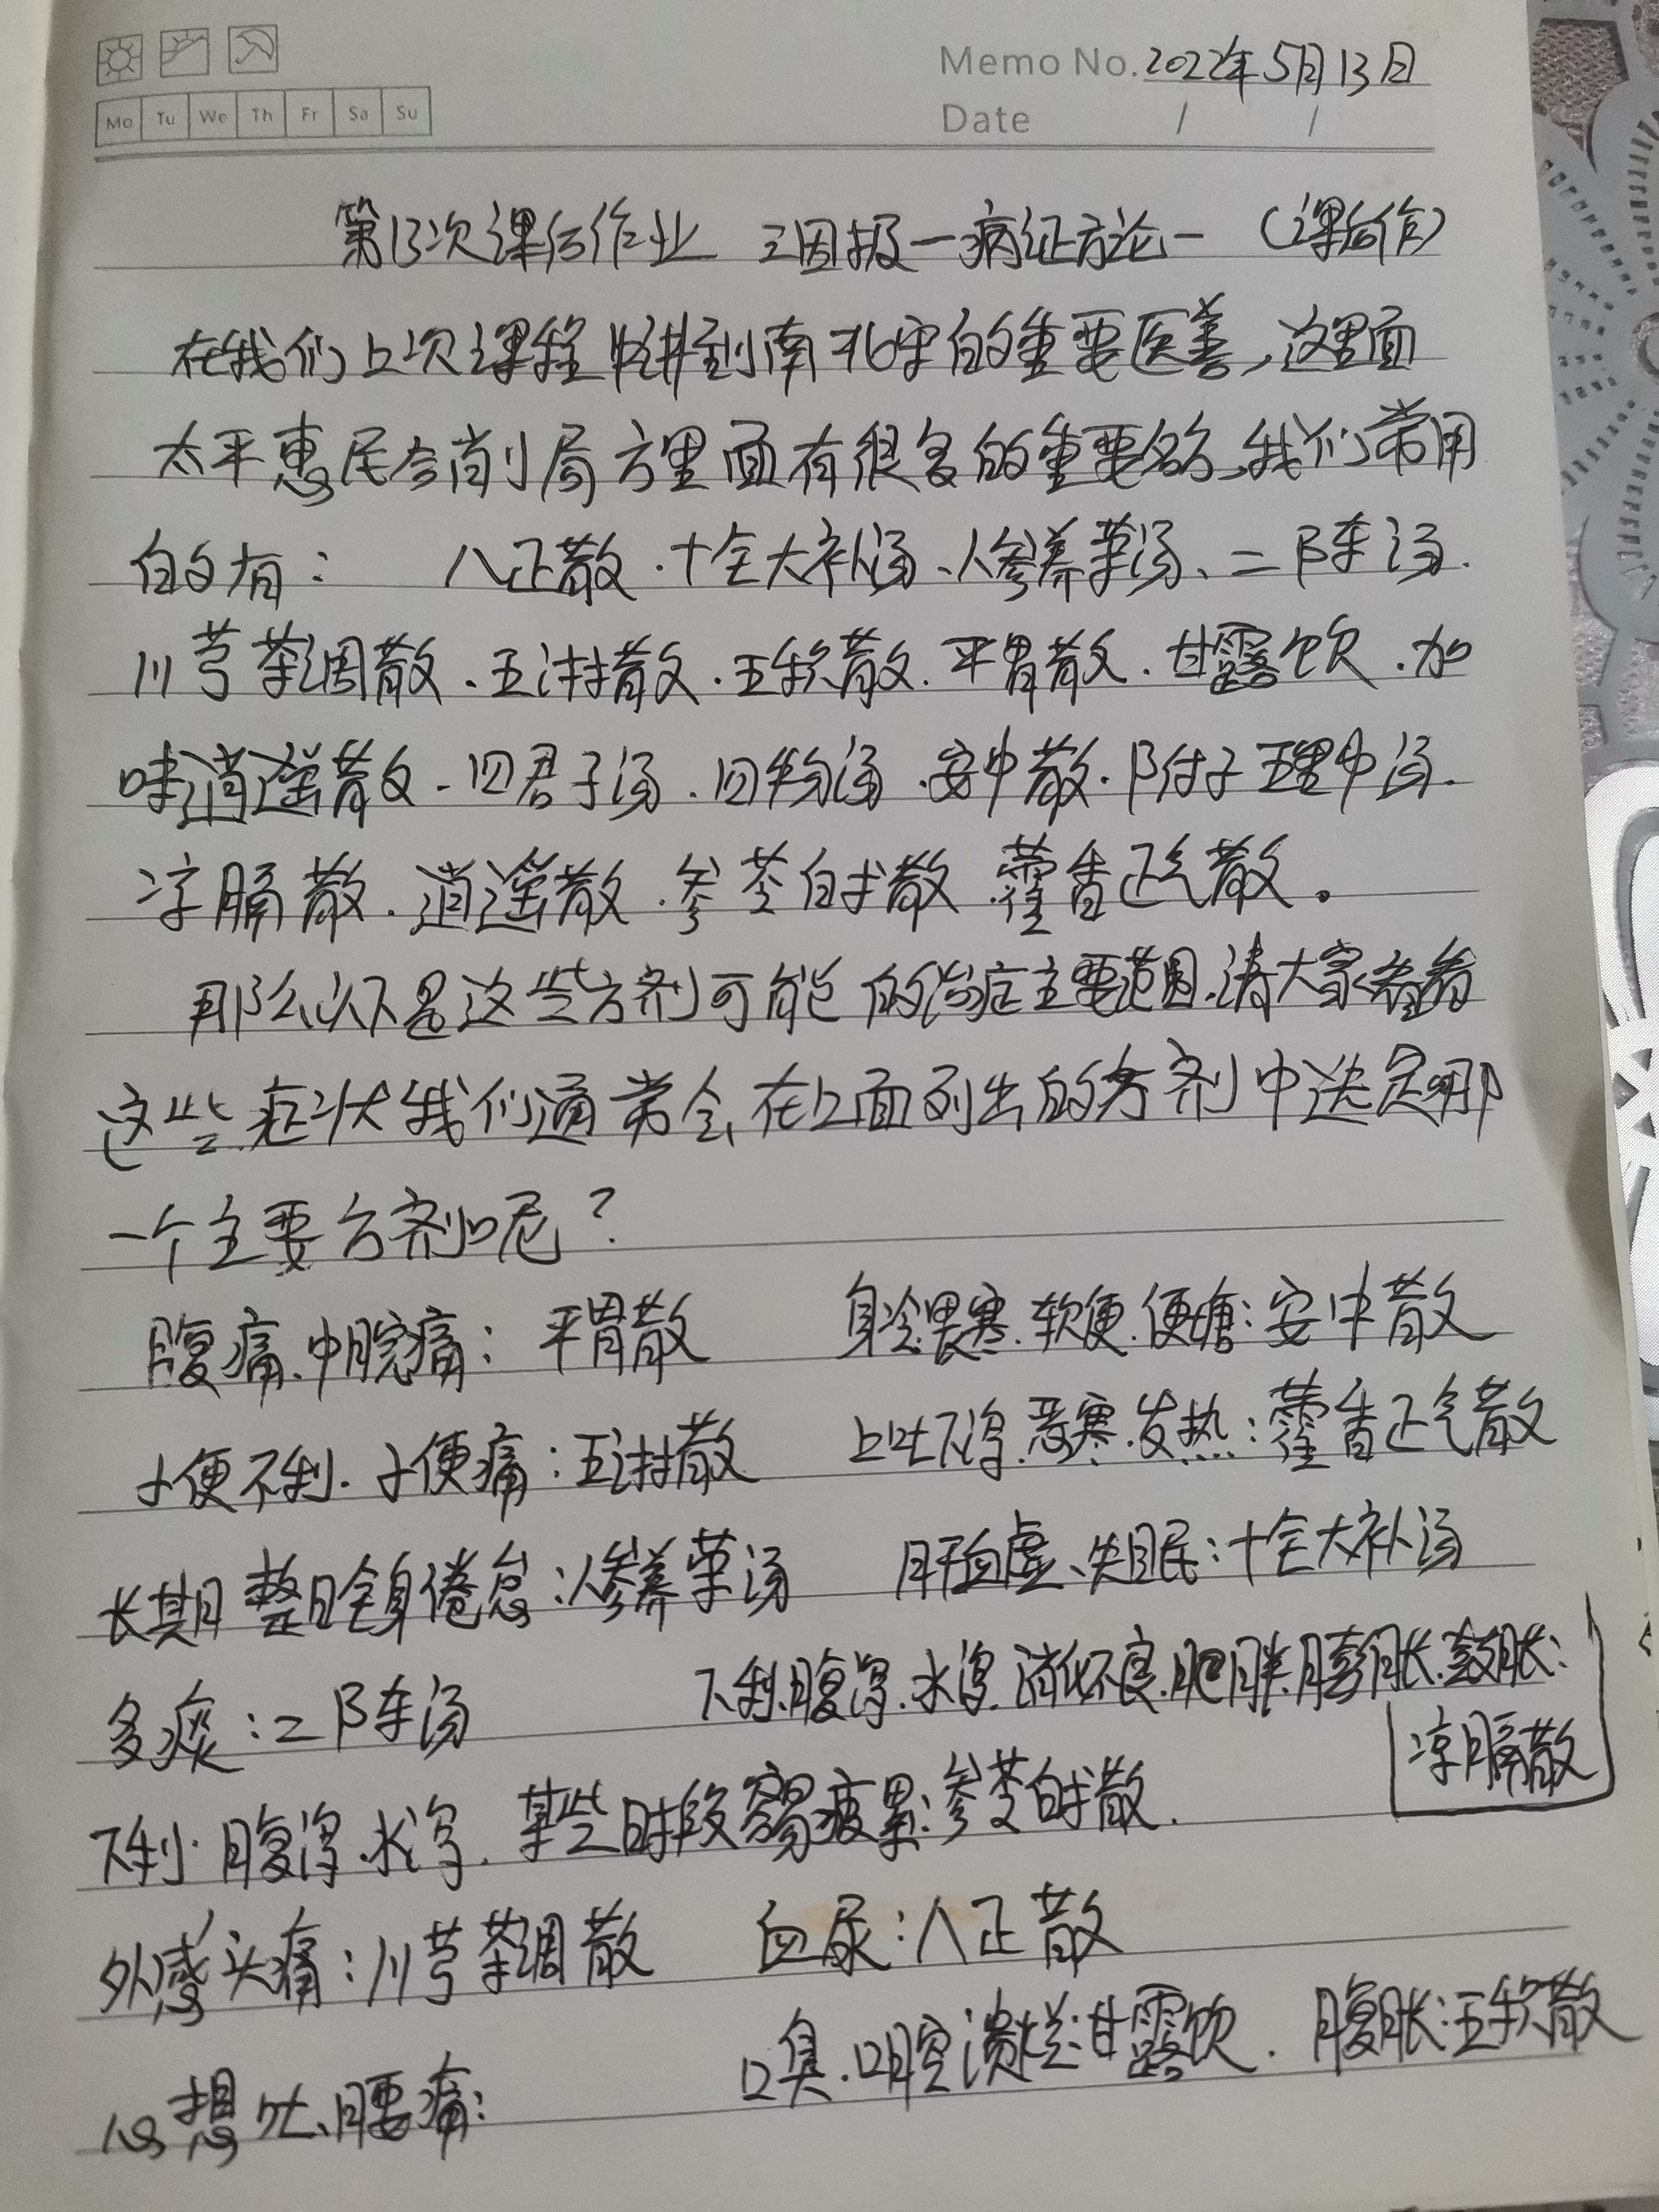 Memo No. 2022年5月13日
Mo Tu We Th Fr Sa Su
Date / /
第13次课后作业 三因极一病证方论一 (课后作)
在我们上次课程中讲到南北宋的重要医善,这里面
太平惠民合剂局方里面有很多的重要名方,我们常用
的有: 八正散.十全大补汤、人参养荣汤、二陈汤.
川芎茶调散.五淋散.五积散.平胃散.甘露饮.加
味逍遥散.四君子汤.四物汤.安中散.附子理中汤.
凉膈散.逍遥散.参苓白术散.藿香正气散。
那么以下是这些方剂可能的治症主要范围,请大家看看
这些症状我们通常会在上面列出的方剂中选定哪
一个主要方剂呢?
腹痛.中脘痛:平胃散 身冷畏寒.软便.便溏:安中散
小便不利.小便痛:五淋散 上吐下泻.恶寒.发热:藿香正气散
长期整日全身倦怠:人参养荣汤 肝血虚、失眠:十全大补汤
多痰:二陈汤 下利.腹泻.水泻.消化不良.肥胖.膨胀.鼓胀:
凉膈散
下利.腹泻.水泻.某些时段容易疲累:参苓白术散.
外感头痛:川芎茶调散 血尿:八正散
口臭.口腔溃烂:甘露饮. 腹胀:五积散
心想吐、腰痛: